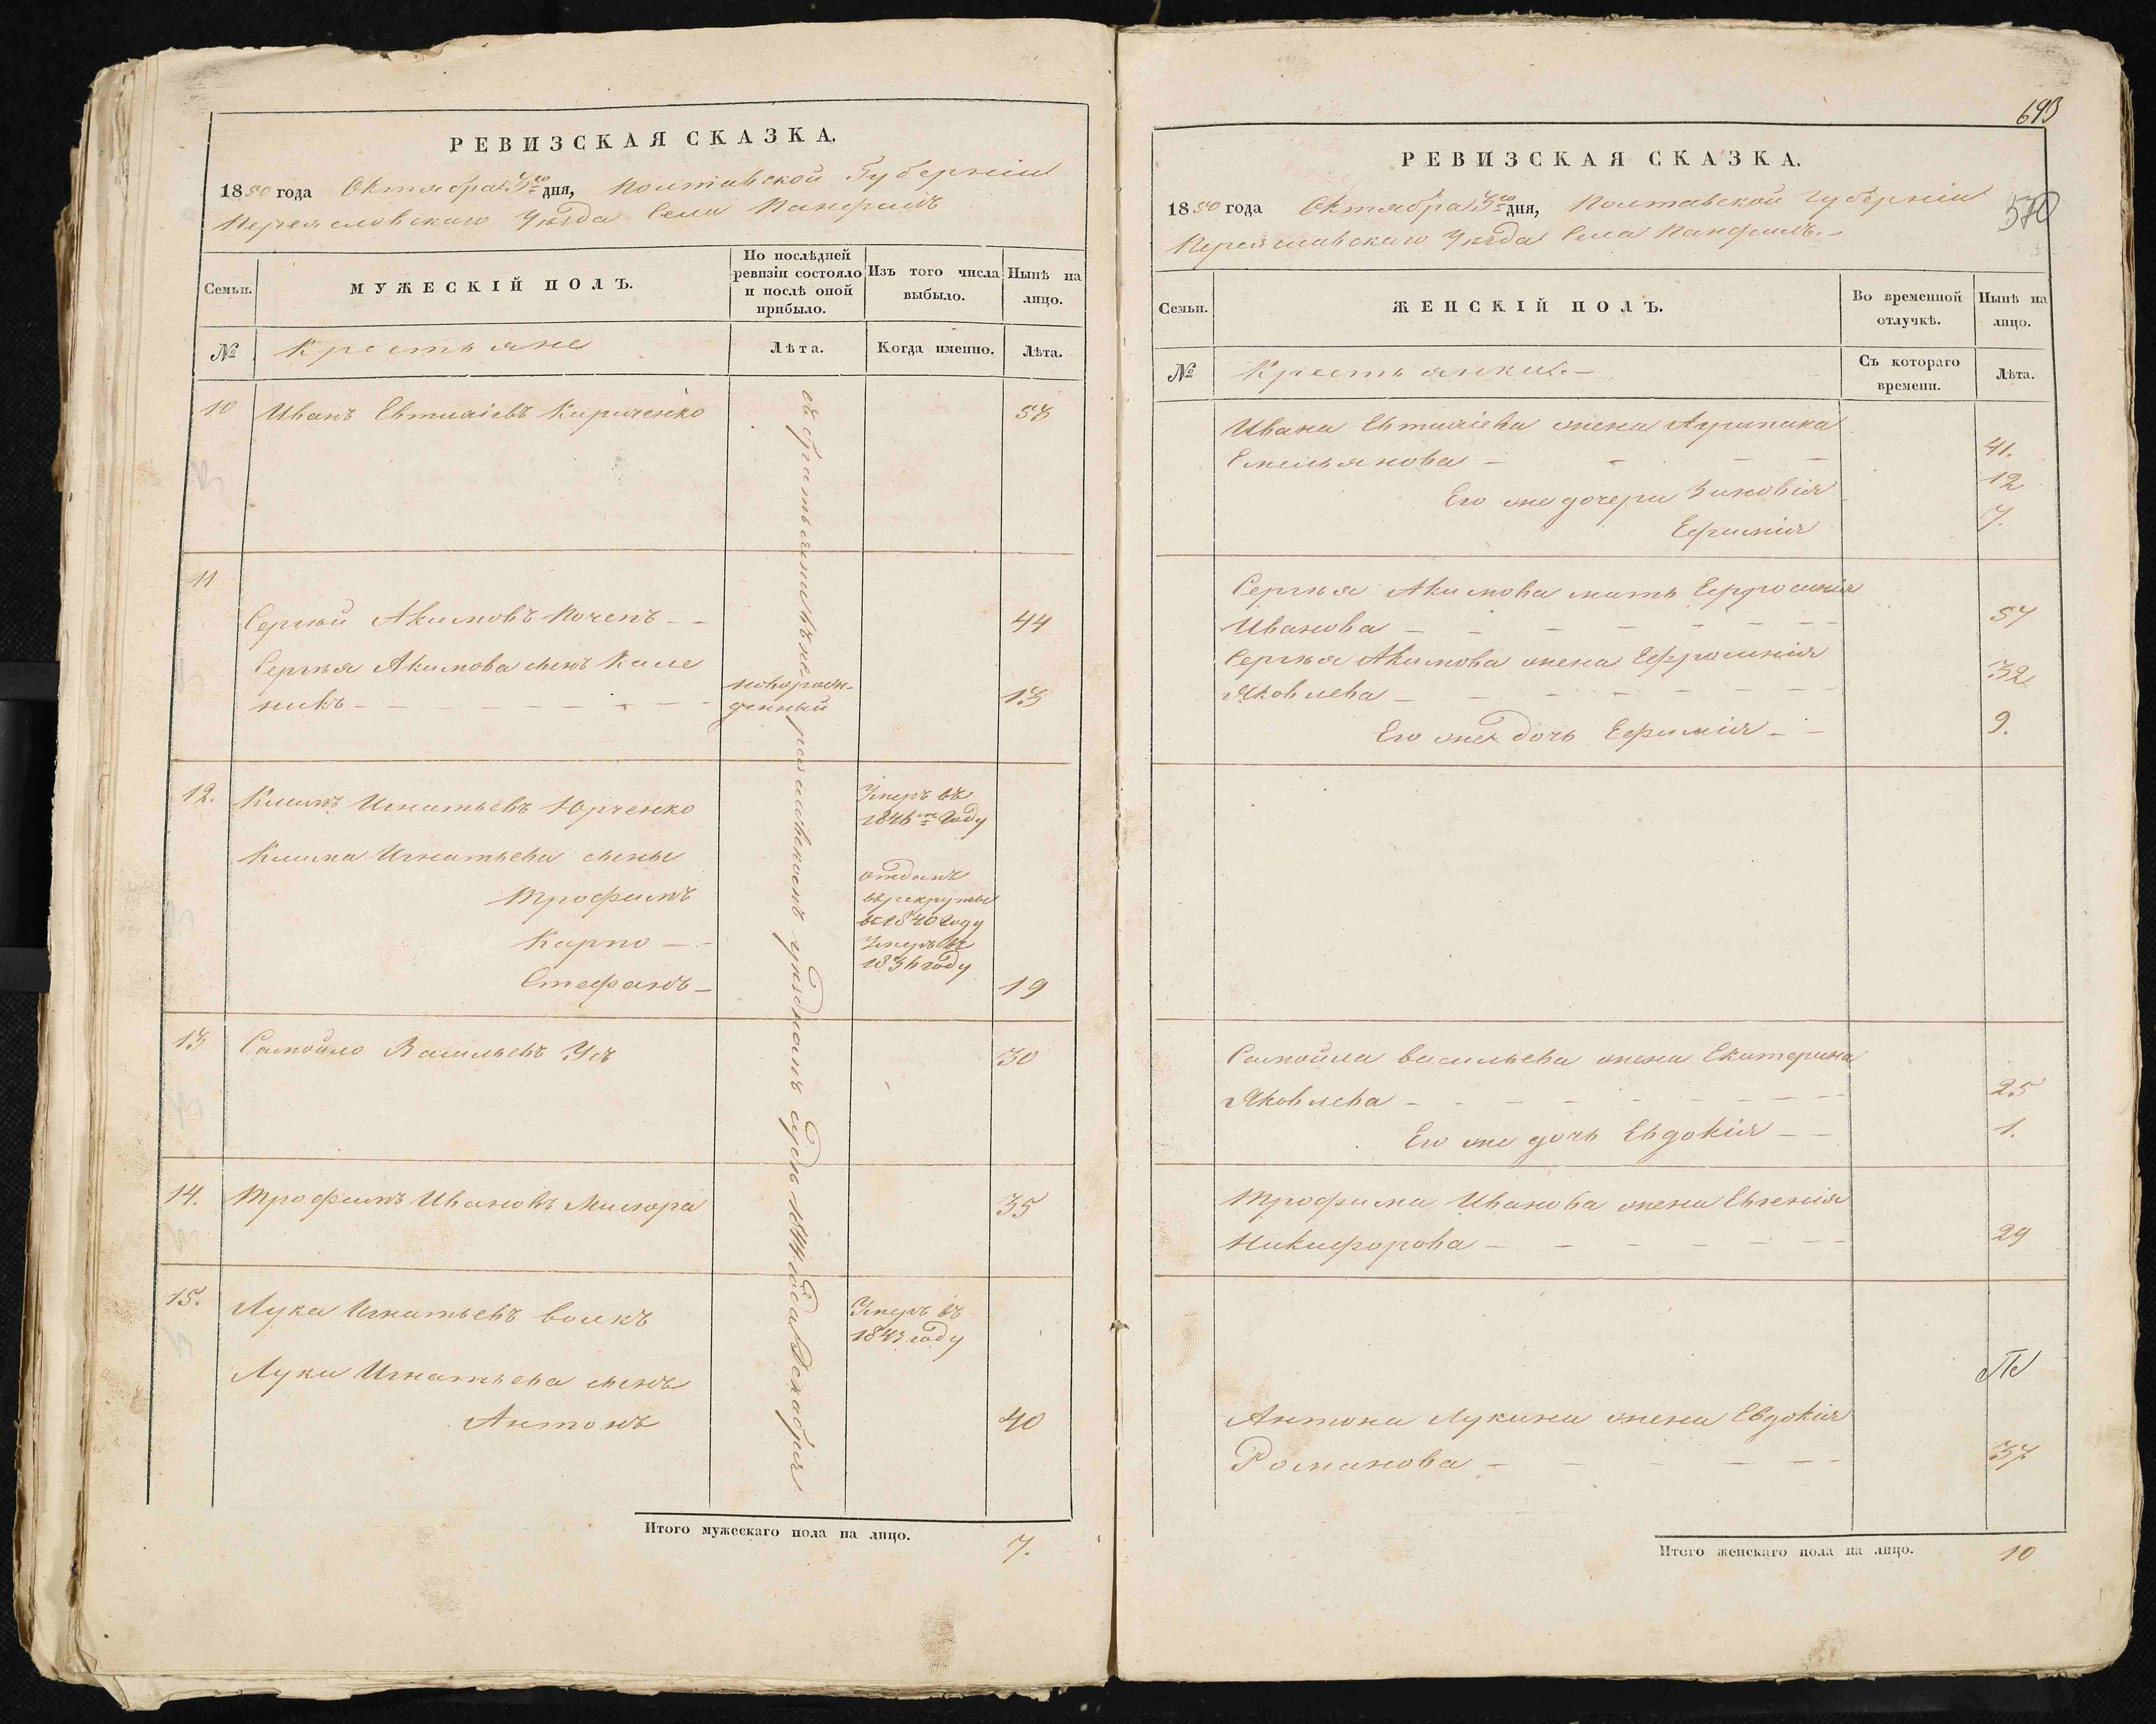 РЕВИЗСКАЯ СКАЗКА.
1850 года Октября дня, Полтавской Губерніи
Переясловскаго Уѣзда Села Панфилъ
Семьи.
МУЖЕСКІЙ ПОЛЪ.
По послѣдней
ревизіи состояло
и послѣ оной
прибыло.
Изъ того числа
выбыло.
Нынѣ на
лицо.
№
Крестьяне
Лѣта.
Когда именно.
Лѣта.
10 Иванъ Евтихіевъ Кириченко
11
Сергѣй Акимовъ Почепъ - - 44
Сергѣя Акимова сынъ Кале
никъ - - - - - новорож-
денный 13
12. Климъ Игнатьевъ Юрченко Умеръ въ
1846 Году
Клима Игнатьева сыны
Трофимъ отданъ
въ рекруты
въ 1840 году
Карпо - - Умеръ въ
1836 году
Стефанъ - 19
13 Самойло Васильевъ Усъ 30
14. Трофимъ Ивановъ 35
15. Лука Игнатьевъ Волкъ Умеръ въ
1843 году
Луки Игнатьева сынъ
Антонъ 40
Итого мужескаго пола на лицо. 7.
693
570
РЕВИЗСКАЯ СКАЗКА.
1850 года Октября дня, Полтавской Губерніи
Переяславскаго Уѣзда Села Панфилъ.-
Семьи.
ЖЕНСКІЙ ПОЛЪ.
Во временной
отлучкѣ.
Нынѣ на
лицо.
№
Крестьянки.-
Съ котораго
времени.
Лѣта.
Ивана Евтихіева жена Агрипина
Емельянова - - - - 41.
Его же дочери Зиновія 12
Ефимія 7.
Сергѣя Акимова мать Ефросинія
Иванова - - - - - - 57
Сергѣя Акимова жена Ефросинія
Яковлева - - - - - 32
Его же дочь Ефимія - - 9.
Самойла Васильева жена Екатерина
Яковлева - - - - - - 25
Его же дочь Евдокія - - 1.
Трофима Иванова жена Евгенія
Никифорова - - - - - 29
Антона Лукина жена Евдокія
Романова - - - - - 37.
Итого женскаго пола на лицо. 10